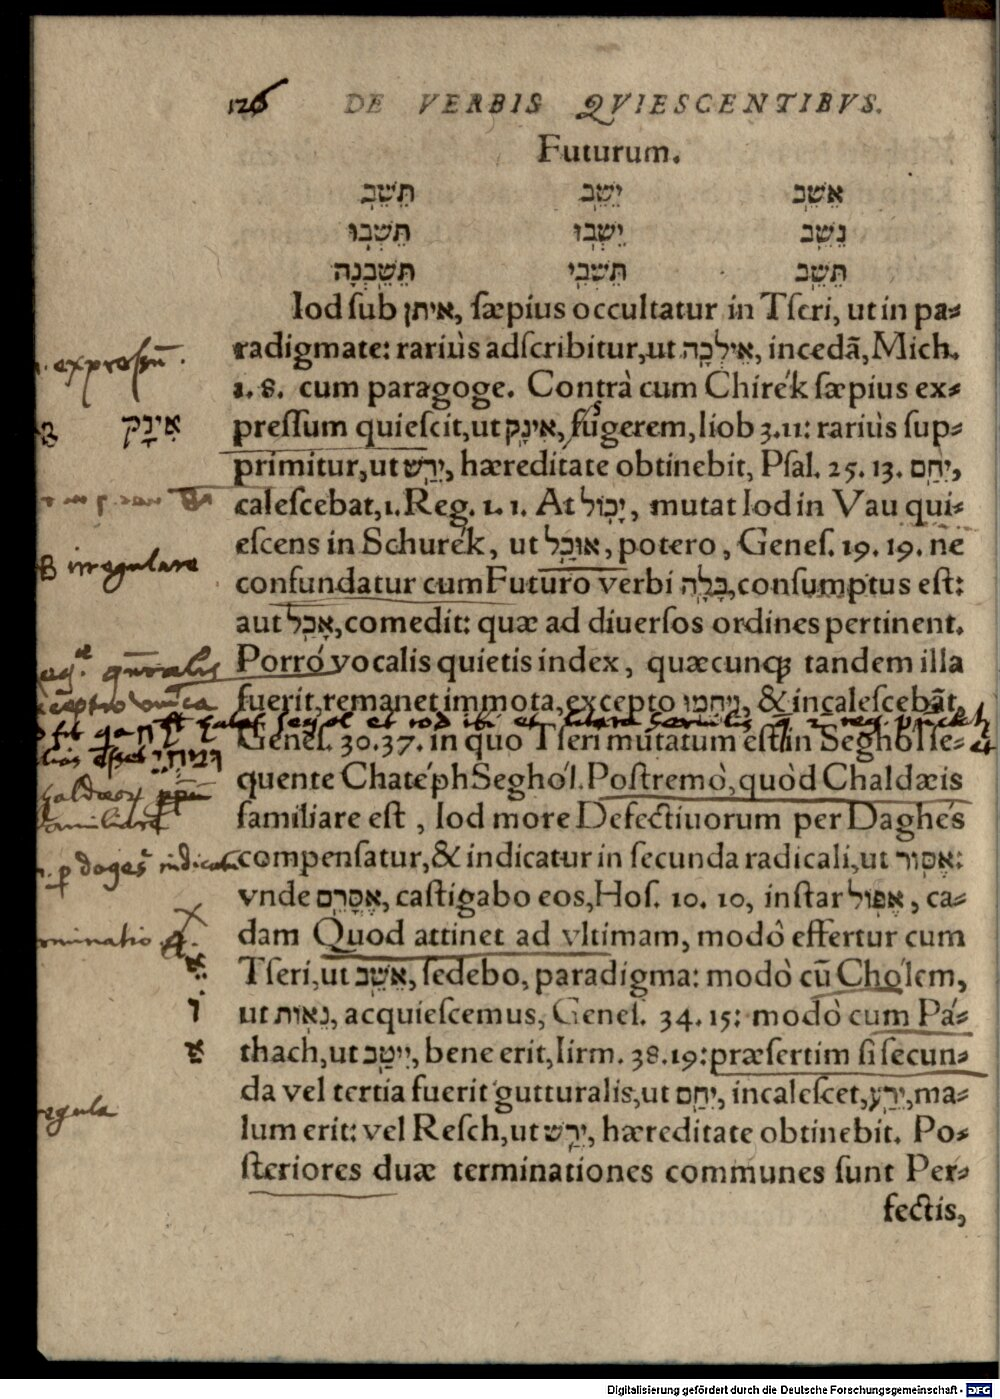 126 DE VERBIS QVIESCENTIBVS.
Futurum.
אֵשֵׁב יֵשֵׁב תֵּשֵׁב
נֵשֵׁב יֵשְׁבוּ תֵּשְׁבוּ
תֵּשֵׁב תֵּשְׁבִי תֵּשֵׁבְנָה
Iod ſub איתן, ſæpius occultatur in Tſeri, ut in pa-
radigmate: rariùs adſcribitur, ut אֵילְכָה, incedã, Mich.
1. 8. cum paragoge. Contrà cum Chirék ſæpius ex-
n. expreſsũ.
preſſum quieſcit, ut אִינַק, ſugerem, Iiob 3. 11: rariùs ſup-
אִינָק
primitur, ut יִרַשׁ, hæreditate obtinebit, Pſal. 25. 13. יִחַם,
caleſcebat, 1. Reg. 1. 1. At יָכוֹל, mutat Iod in Vau qui-
eſcens in Schurék, ut אוּכַל, potero, Geneſ. 19. 19. ne
irregulare
confundatur cum Futuro verbi כָּלָה, conſumptus eſt:
aut אָכַל, comedit: quæ ad diuerſos ordines pertinent.
Porrò vocalis quietis index, quæcunq; tandem illa
fuerit, remanet immota, excepto וַיֵּחֱמוּ, & incaleſcebãt,
Geneſ. 30. 37. in quo Tſeri mutatum eſt in Seghól ſe-
quente Chatéph Seghól. Poſtremò, quòd Chaldæis
familiare eſt, Iod more Defectiuorum per Daghés
familiare
compenſatur, & indicatur in ſecunda radicali, ut אֶסּוֹר:
vnde אֶסֳּרֵם, caſtigabo eos, Hoſ. 10. 10, inſtar אֶפּוֹל, ca-
dam Quod attinet ad vltimam, modò effertur cum
Tſeri, ut אֵשֵׁב, ſedebo, paradigma: modò cũ Chólem,
ut נֵאוֹת, acquieſcemus, Geneſ. 34. 15: modò cum Pá-
thach, ut יִיטַב, bene erit, Iirm. 38. 19: præſertim ſi ſecun-
da vel tertia fuerit gutturalis, ut יֵחַם, incaleſcet, יֵרַע, ma-
regula
lum erit: vel Reſch, ut יִרַשׁ, hæreditate obtinebit. Po-
ſteriores duæ terminationes communes ſunt Per-
fectis,
Digitalisierung gefördert durch die Deutsche Forschungsgemeinschaft - DFG